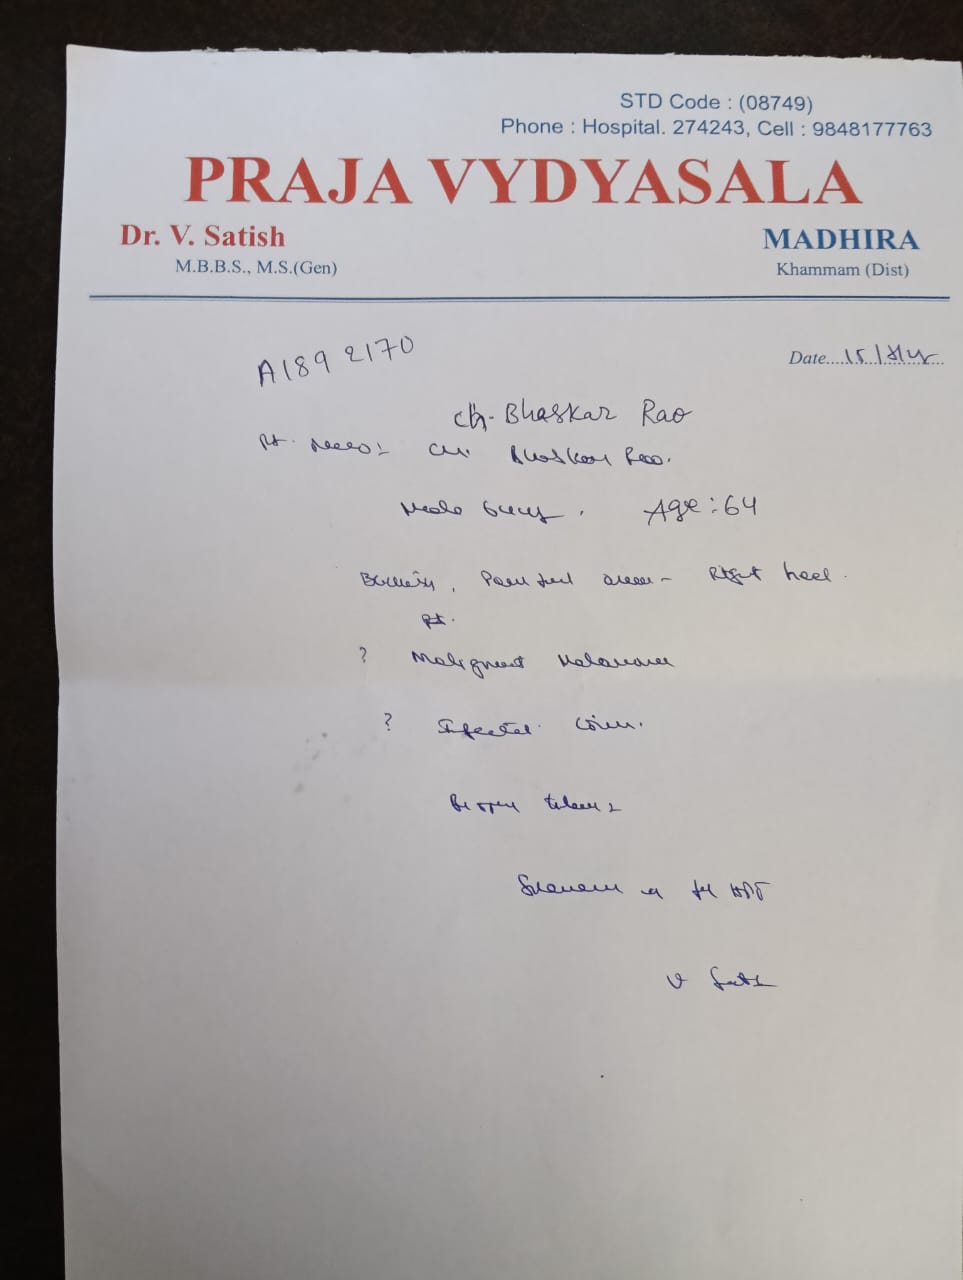 STD Code : (08749)
Phone : Hospital. 274243, Cell : 9848177763
PRAJA VYDYASALA
Dr. V. Satish
M.B.B.S., M.S.(Gen)
MADHIRA
Khammam (Dist)
A189 2170
Date....15/
Ch. Bhaskar Rao
Pt. Ch. Bhaskar Rao.
Male Age: 64
Painful Right heel.
Rt.
? Malignant Melanoma
? Infected Corn.
Biopsy taken
for HPE
V Satish